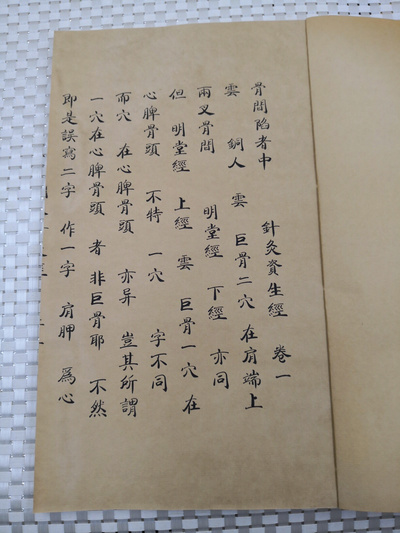 骨間陷者中 針灸資生經 卷一
雲 銅人 雲 巨骨二穴 在肩端上
兩叉骨間 明堂經 下經 亦同
但 明堂經 上經 雲 巨骨一穴 在
心脾骨頭 不特 一穴 字不同
而穴 在心脾骨頭 亦异 豈其所謂
一穴在心脾骨頭 者 非巨骨耶 不然
即是誤寫二字 作一字 肩胛 為心